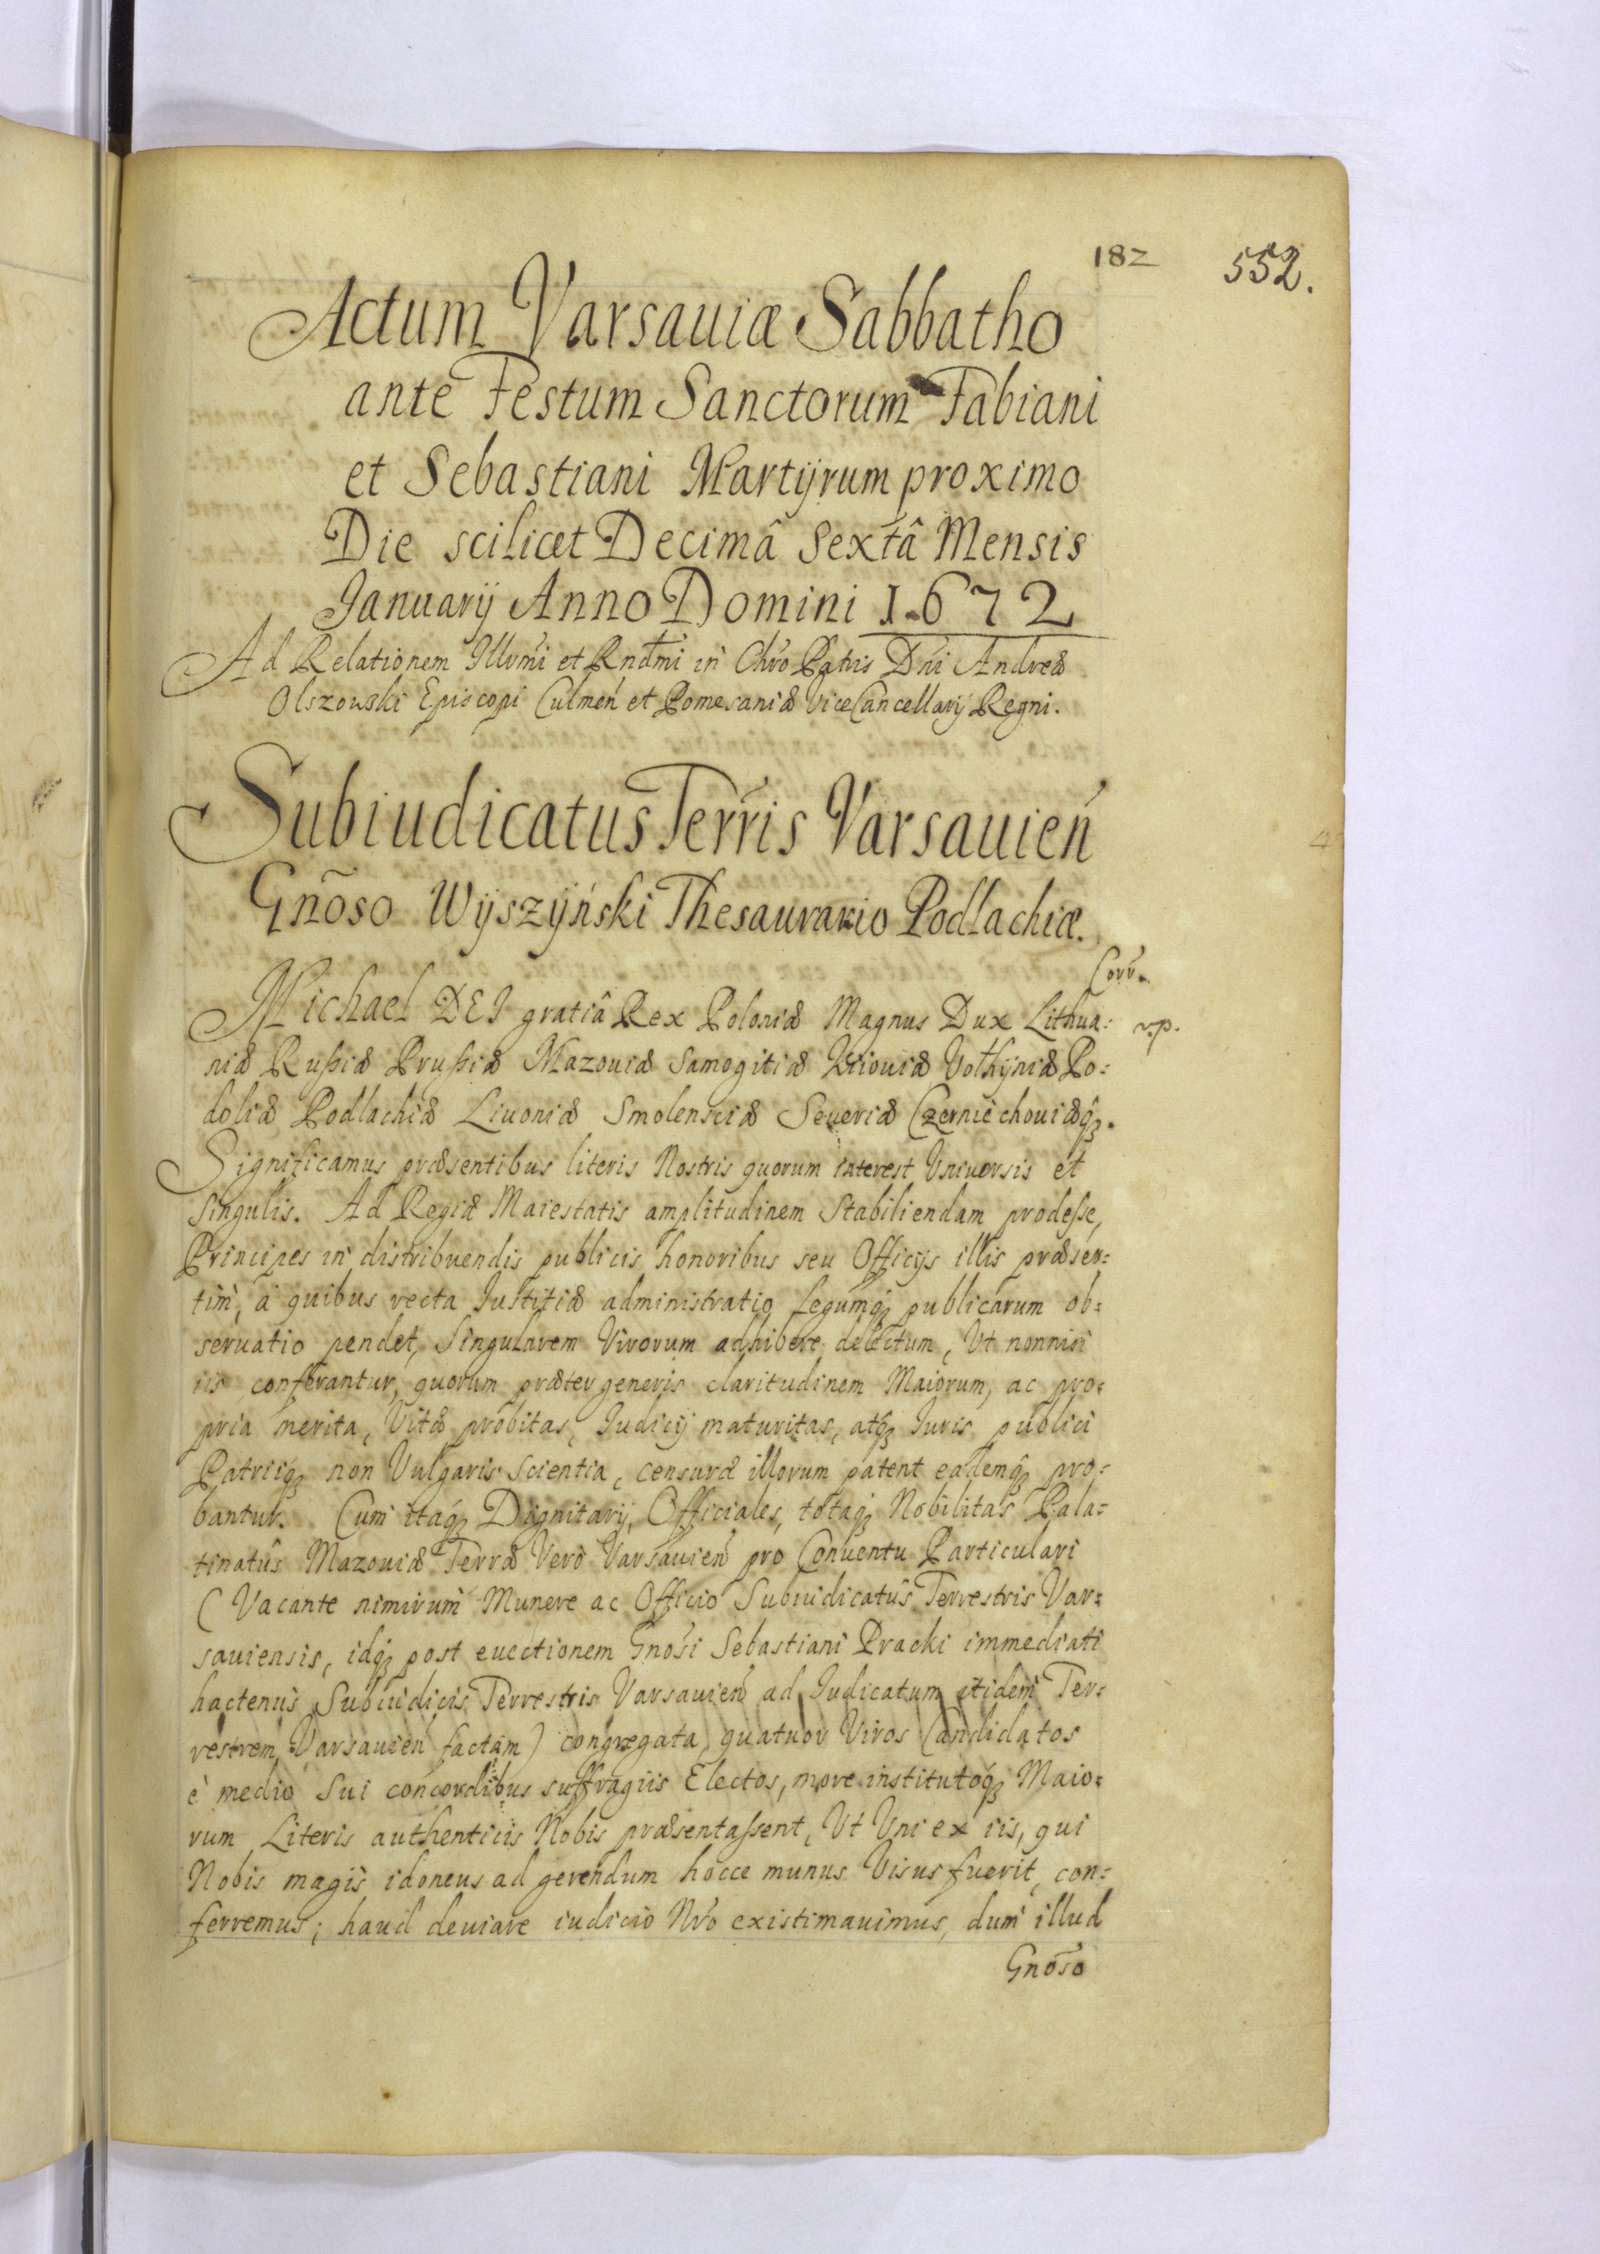 182 552.
Actum Varsauiæ Sabbatho
ante Festum Sanctorum Fabiani
et Sebastiani Martÿrum proximo
Die scilicet Decimâ Sextâ Mensis
Januarÿ Anno Domini 1672
Ad Relationem Illũmi et Rndmi in Chro Patris Dni Andreæ
Olszowski Episcopi Culmeń et Pomesaniæ ViceCancellarÿ Regni.
Subiudicatus Terris Varsauień
Gnõso Wÿszÿński Thesaurario Podlachiæ.
Corr.
Michael DEI gratiâ Rex Poloniæ Magnus Dux Lithua:
r.p.
niæ Rußiæ Prußiæ Mazouiæ Samogitiæ Kiiouiæ Volhÿniæ Po:
doliæ Podlachiæ Liuoniæ Smolensciæ Seueriæ Czerniechouiæq3.
Significamus præsentibus literis Nostris quorum interest Vniuersis et
Singulis. Ad Regiæ Maiestatis amplitudinem Stabiliendam prodeſse,
Principes in distribuendis publicis honoribus seu Officÿs illis præser:
tim, à quibus recta Justitiæ administratio legumq3 publicarum ob:
seruatio pendet, Singularem Virorum adhibere delectum, Vt nonnisi
iis conferantur, quorum præter generis claritudinem Maiorum, ac pro:
pria merita, Vitæ probitas, Judicÿ maturitas, atq3 Juris publici
Patriiq3 non Vulgaris Scientia, censuræ illorum patent eademq3 pro:
bantur. Cum itaq3 Dignitarÿ, Officiales, totaq3 Nobilitas Pala:
tinatûs Mazouiæ Terræ Vero Varsauień pro Conuentu Particulari
(Vacante nimirum Munere ac Officio Subiudicatûs Terrestris Var:
sauiensis, idq3 post euectionem Gnosi Sebastiani Pracki immediati
hactenus Subiudicis Terrestris Varsauień ad Judicatum itidem Ter:
restrem Varsauień factam) congregata, quatuor Viros Candidatos
è medio Sui concordibus suffragiis Electos, more institutoq3 Maio:
rum Literis authenticis Nobis præsentaſsent, Vt Vni ex iis, qui
Nobis magis idoneus ad gerendum hocce munus Visus fuerit, con:
ferremus; haud deuiare iudicio Nro existimauimus, dum illud
Gnõso